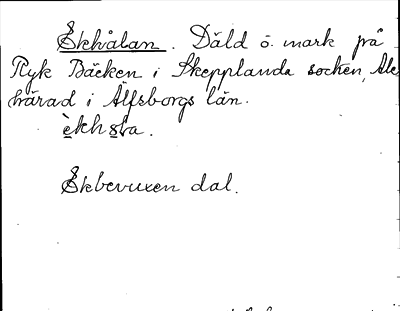 Ekhålan. Däld o. mark på
Ryk Bäcken i Skepplanda socken, Ale
härad i Älfsborgs län.

Ekbevuxen dal.